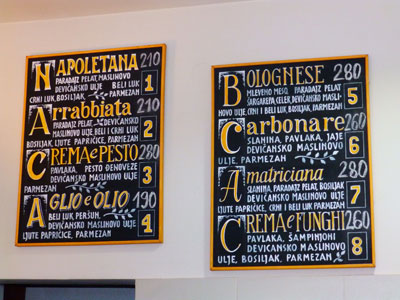 NAPOLETANA 210
PARADAJZ PELAT, MASLINOVO
DEVIČANSKO ULJE BELI LUK
CRNI LUK, BOSILJAK, PARMEZAN
1
Arrabbiata 210
PARADAJZ PELAT, DEVIČANSKO
MASLINOVO ULJE, BELI I CRNI
LUK, BOSILJAK, PARMEZAN
LJUTE PAPRIČICE, PARMEZAN
2
CREMA e PESTO 280
PAVLAKA, PESTO ĐENOVEZE
DEVIČANSKO MASLINOVO ULJE
PARMEZAN
3
AGLIO e OLIO 190
BELI LUK, PERŠUN,
DEVIČANSKO MASLINOVO ULJE
LJUTE PAPRIČICE, PARMEZAN
4
BOLOGNESE 280
MLEVENO MESO, PARADAJZ PELAT
ŠARGAREPA, CELER, DEVIČANSKO MASLI-
NOVO ULJE, CRNI BELI LUK, PARMEZAN
5
Carbonare 260
SLANINA, PAVLAKA, JAJE
DEVIČANSKO MASLINOVO
ULJE, PARMEZAN
6
Amatriciana 280
SLANINA, PARADAJZ PELAT, BOSILJAK
DEVIČANSKO MASLINOVO ULJE, LJUTE
PAPRIČICE, CRNI I BELI LUK PARMEZAN
7
CREMA e FUNGHI 260
PAVLAKA, ŠAMPINJONI
DEVIČANSKO MASLINOVO
ULJE, BOSILJAK, PARMEZAN
8